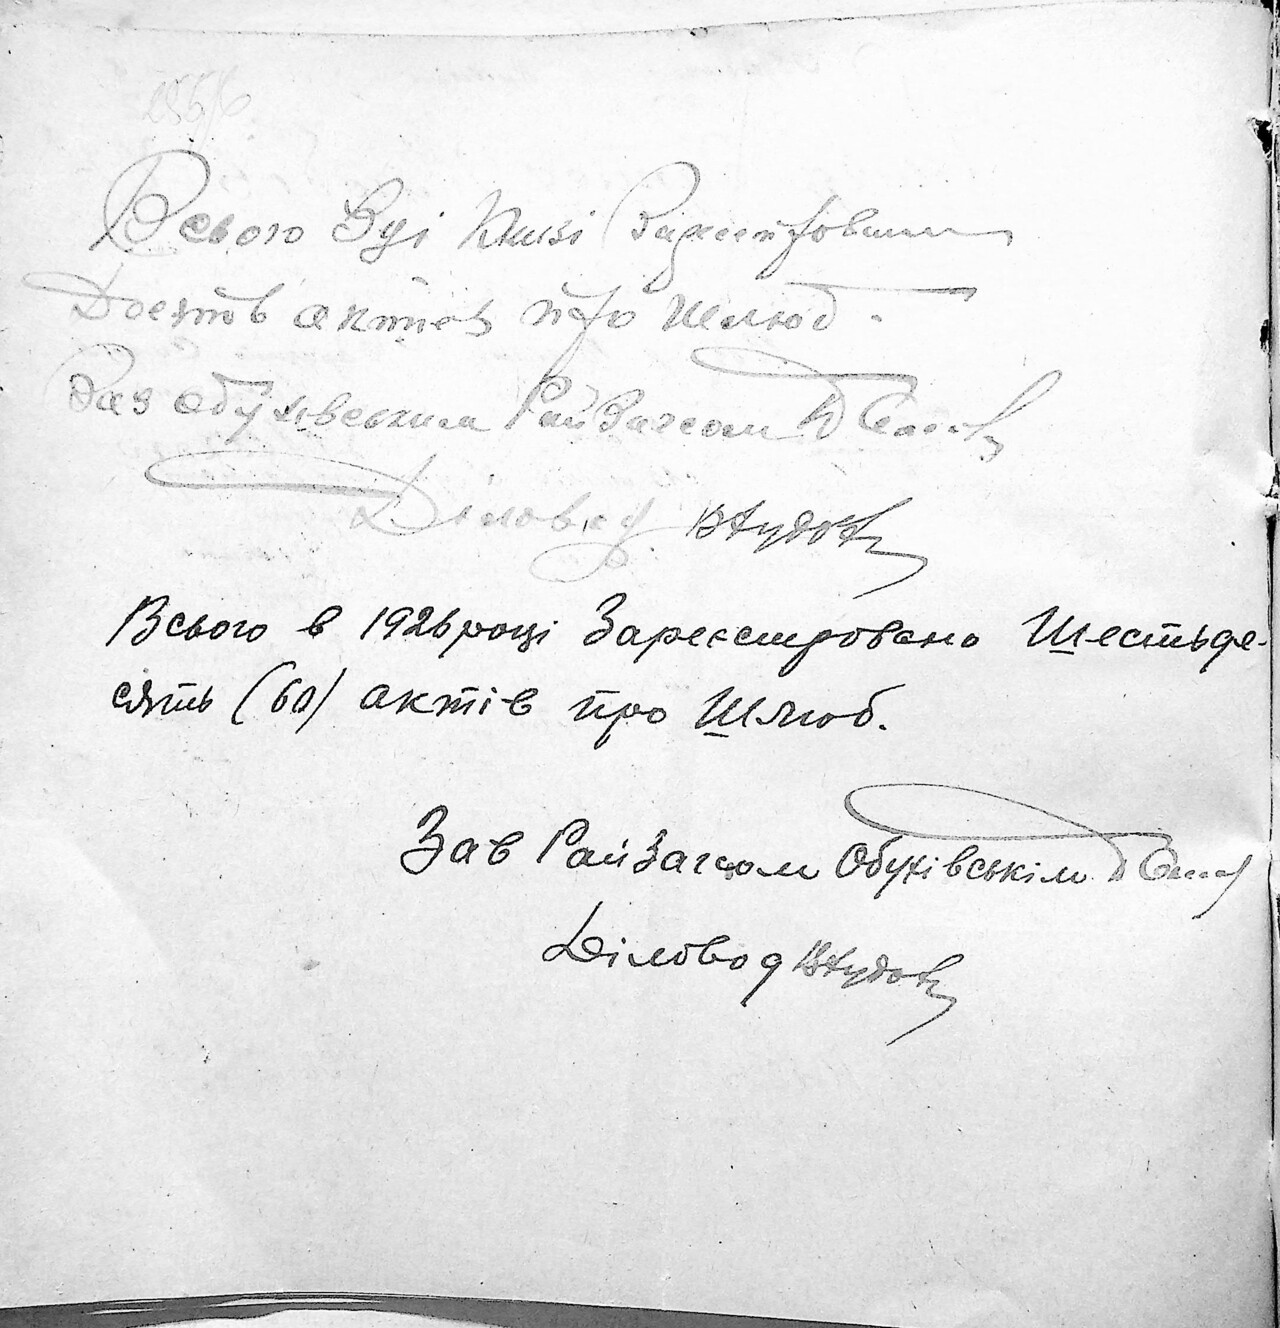 Всього в ці книзі Зареєстровано
Десять актів про шлюб.
Зав Обухівським РайЗагсом
Діловод
Всього в 1926 році Зареєстровано Шестьде-
сять (60) актів про Шлюб.
Зав РайЗагсом Обухівськім
Діловод